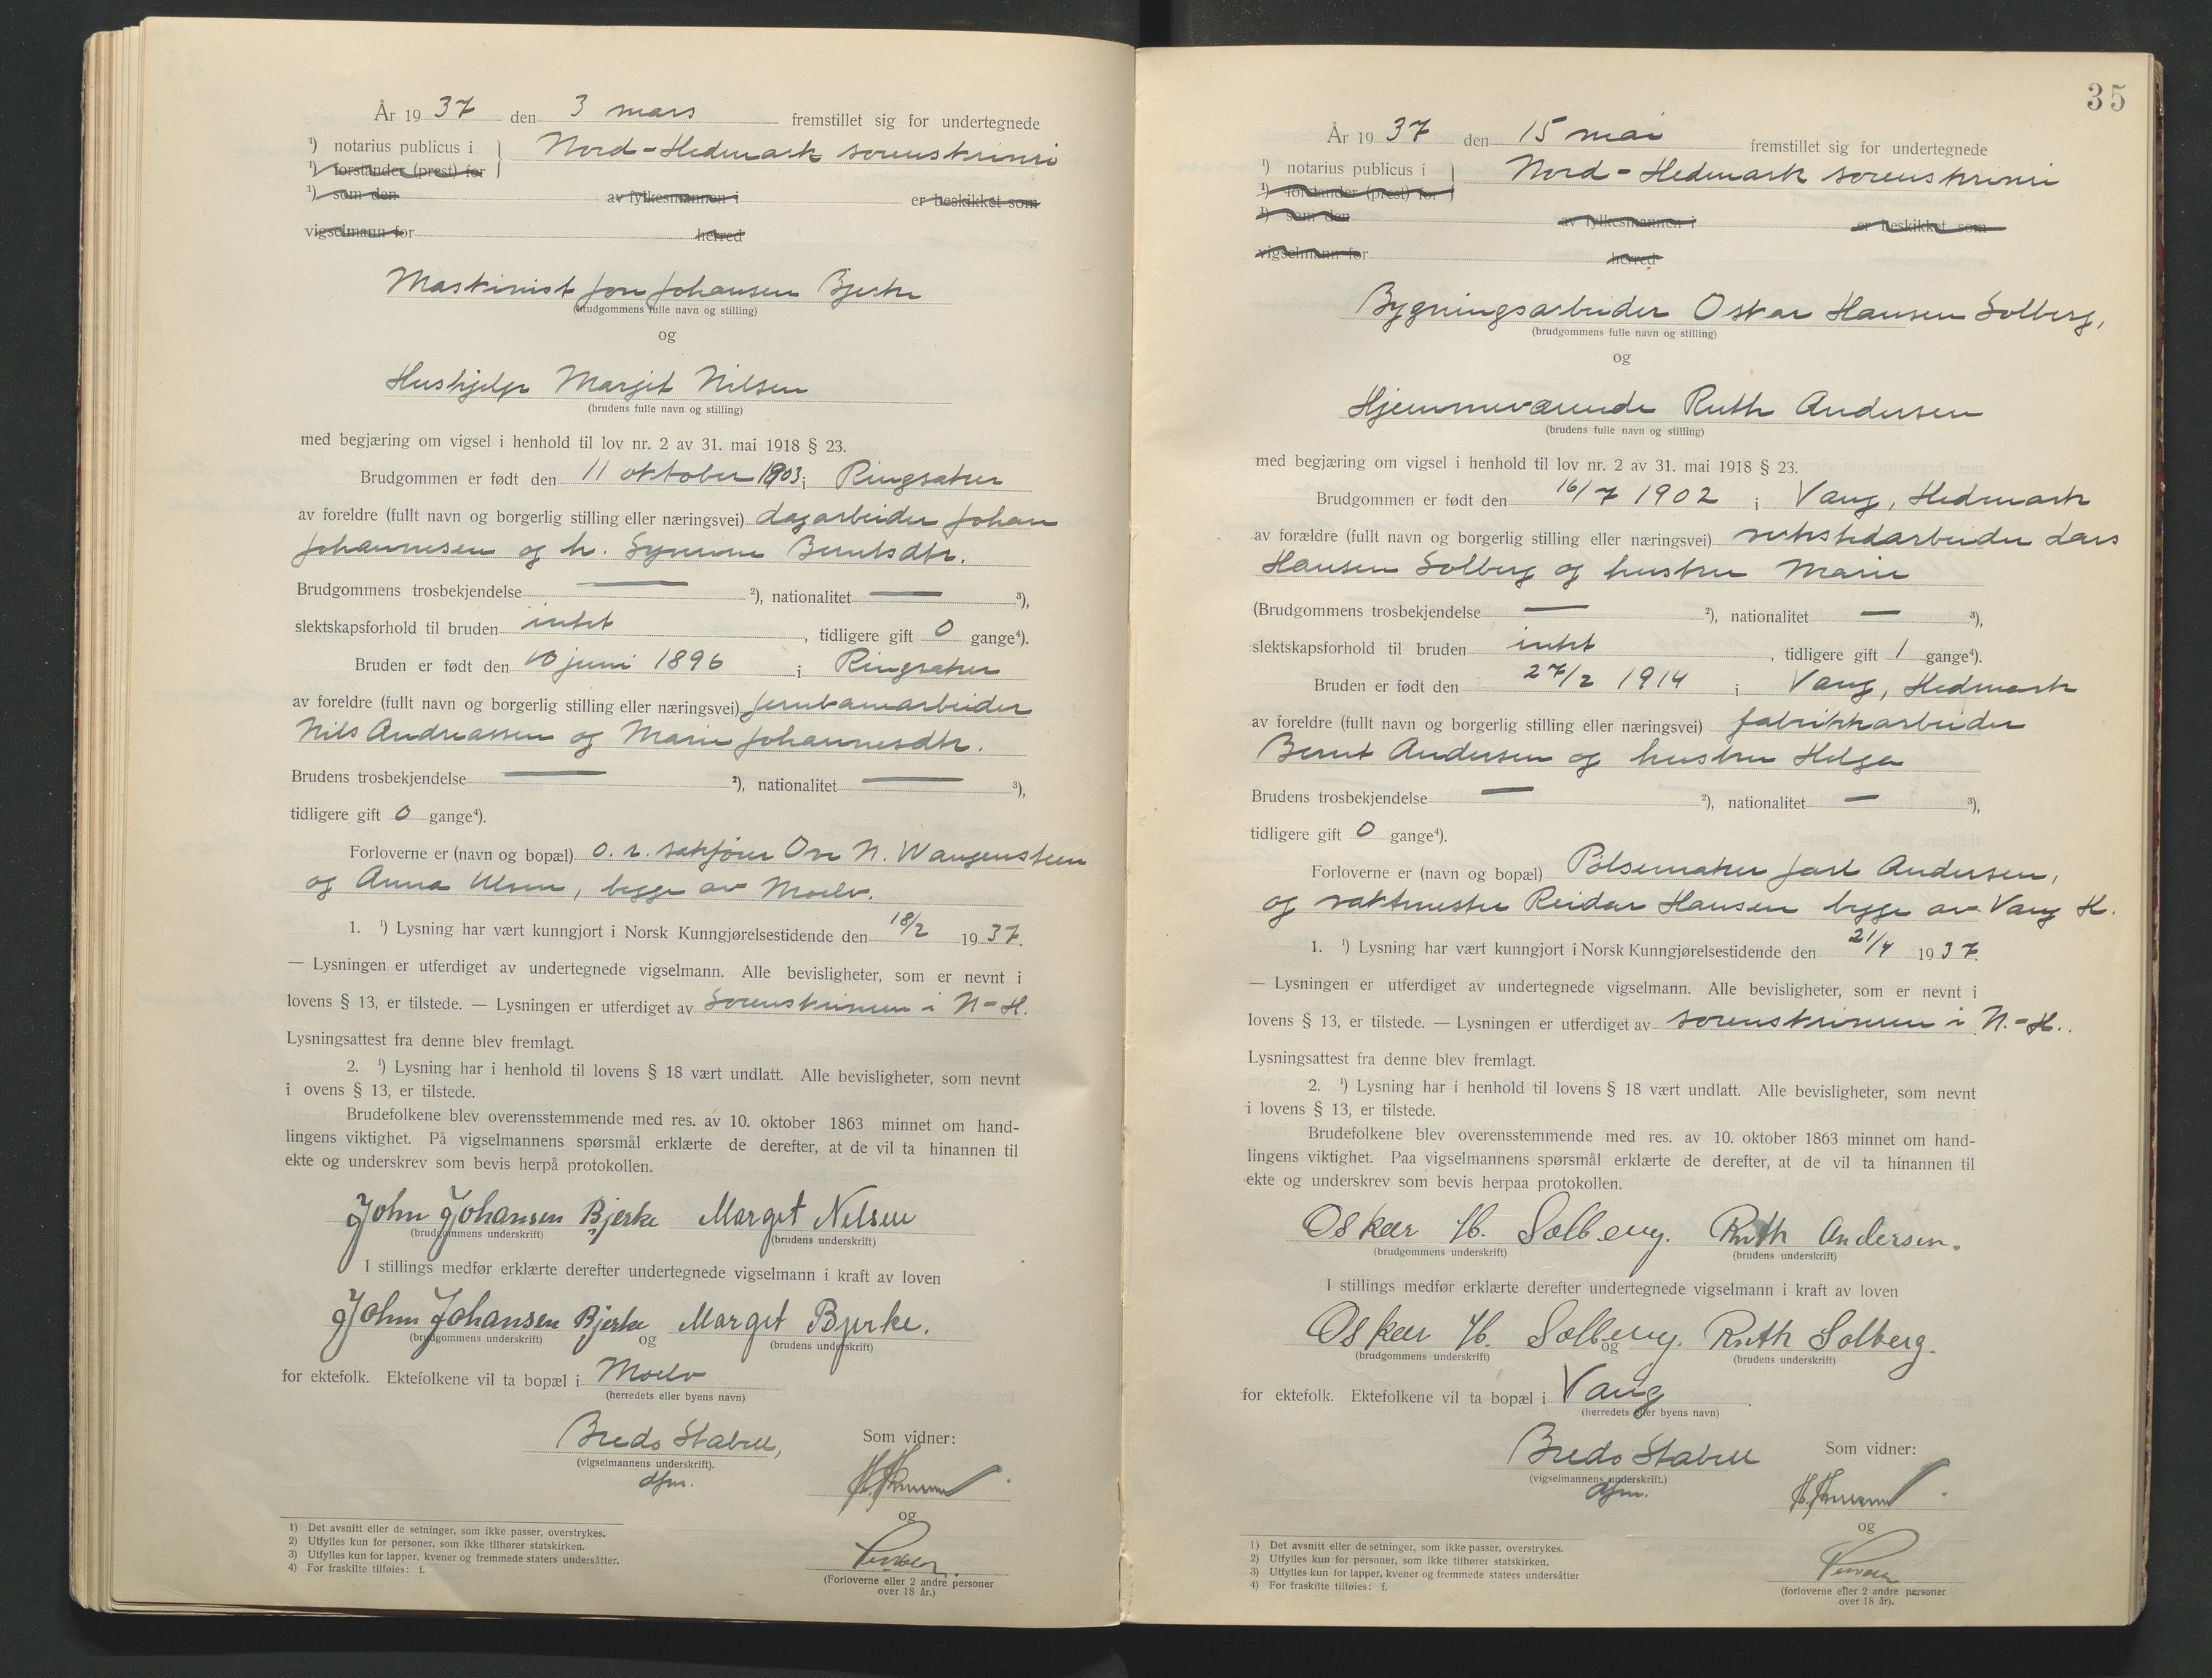 År 1937 den 3 mars fremstillet sig for undertegnede
¹) notarius publicus i } Nord-Hedmark sorenskriveri
¹) forstander (prest) for
¹) som den av fylkesmannen i er beskikket som
vigselmann for herred
Maskinist Jon Johansen Bjerke
(brudgommens fulle navn og stilling)
og
Hushjelp Margit Nilsen
(brudens fulle navn og stilling)
med begjæring om vigsel i henhold til lov nr. 2 av 31. mai 1918 § 23.
Brudgommen er født den 11 oktober 1903 i Ringsaker
av foreldre (fullt navn og borgerlig stilling eller næringsvei) dagarbeider Johan
Johannesen og h. Syverine Berntsdtr.
Brudgommens trosbekjendelse — ²), nationalitet — ³),
slektskapsforhold til bruden intet, tidligere gift 0 gange⁴).
Bruden er født den 10 juni 1896 i Ringsaker
av foreldre (fullt navn og borgerlig stilling eller næringsvei) jernbanearbeider
Nils Andreassen og Marie Johannesdtr.
Brudens trosbekjendelse — ²), nationalitet — ³),
tidligere gift 0 gange⁴).
Forloverne er (navn og bopæl) o. r. sakfører Ove N. Wangensteen
og Anna Ulsen, begge av Moelv.
1. ¹) Lysning har vært kunngjort i Norsk Kunngjørelsestidende den 18/2 1937.
— Lysningen er utferdiget av undertegnede vigselmann. Alle bevisligheter, som er nevnt i
lovens § 13, er tilstede. — Lysningen er utferdiget av Sorenskriveren i N-H.
Lysningsattest fra denne blev fremlagt.
2. ¹) Lysning har i henhold til lovens § 18 vært undlatt. Alle bevisligheter, som nevnt
i ovens § 13, er tilstede.
Brudefolkene blev overensstemmende med res. av 10. oktober 1863 minnet om hand-
lingens viktighet. På vigselmannens spørsmål erklærte de derefter, at de vil ta hinannen til
ekte og underskrev som bevis herpå protokollen.
John Johansen Bjerke Margit Nilsen
(brudgommens underskrift) (brudens underskrift)
I stillings medfør erklærte derefter undertegnede vigselmann i kraft av loven
John Johansen Bjerke og Margit Bjerke.
(brudgommens underskrift) (brudens underskrift)
for ektefolk. Ektefolkene vil ta bopæl i Moelv
(herredets eller byens navn)
Bredo Stabell,
(vigselmannens underskrift).
dfm.
Som vidner:
og
(Forloverne eller 2 andre personer
over 18 år.)
1) Det avsnitt eller de setninger, som ikke passer, overstrykes.
2) Utfylles kun for personer, som ikke tilhører statskirken.
3) Utfylles kun for lapper, kvener og fremmede staters undersåtter.
4) For fraskilte tilføies: f.
35
År 1937 den 15 mai fremstillet sig for undertegnede
¹) notarius publicus i } Nord-Hedmark sorenskriveri
¹) forstander (prest) for
¹) som den av fylkesmannen i er beskikket som
vigselmann for herred
Bygningsarbeider Oskar Hansen Solberg,
(brudgommens fulle navn og stilling)
og
Hjemmeværende Ruth Andersen
(brudens fulle navn og stilling)
med begjæring om vigsel i henhold til lov nr. 2 av 31. mai 1918 § 23.
Brudgommen er født den 16/7 1902 i Vang, Hedmark
av forældre (fullt navn og borgerlig stilling eller næringsvei) verkstedarbeider Lars
Hansen Solberg og hustru Marie
(Brudgommens trosbekjendelse — ²), nationalitet — ³),
slektskapsforhold til bruden intet, tidligere gift 1 gange⁴).
Bruden er født den 27/2 1914 i Vang, Hedmark
av foreldre (fullt navn og borgerlig stilling eller næringsvei) fabrikkarbeider
Bernt Andersen og hustru Helga
Brudens trosbekjendelse — ²), nationalitet — ³),
tidligere gift 0 gange⁴).
Forloverne er (navn og bopæl) Pølsemaker Jarl Andersen,
og vaktmester Reidar Hansen begge av Vang H.
1. ¹) Lysning har vært kunngjort i Norsk Kunngjørelsestidende den 21/4 1937.
— Lysningen er utferdiget av undertegnede vigselmann. Alle bevisligheter, som er nevnt i
lovens § 13, er tilstede. — Lysningen er utferdiget av sorenskriveren i N.-H.
Lysningsattest fra denne blev fremlagt.
2. ¹) Lysning har i henhold til lovens § 18 vært undlatt. Alle bevisligheter, som nevnt
i lovens § 13, er tilstede.
Brudefolkene blev overensstemmende med res. av 10. oktober 1863 minnet om hand-
lingens viktighet. Paa vigselmannens spørsmål erklærte de derefter, at de vil ta hinannen til
ekte og underskrev som bevis herpaa protokollen.
Oskar H. Solberg. Ruth Andersen.
(brudgommens underskrift) (brudens underskrift)
I stillings medfør erklærte derefter undertegnede vigselmann i kraft av loven
Oskar H. Solberg. og Ruth Solberg.
(brudgommens underskrift) (brudens underskrift)
for ektefolk. Ektefolkene vil ta bopæl i Vang
(herredets eller byens navn)
Bredo Stabell
(vigselmannens underskrift.)
dfm.
Som vidner:
og
(forloverne eller 2 andre personer
over 18 år).
1) Det avsnitt eller de setninger, som ikke passer, overstrykes.
2) Utfylles kun for personer, som ikke tilhører statskirken.
3) Utfylles kun for lapper, kvener og fremmede staters undersåtter
4) For fraskilte tilføies: f.